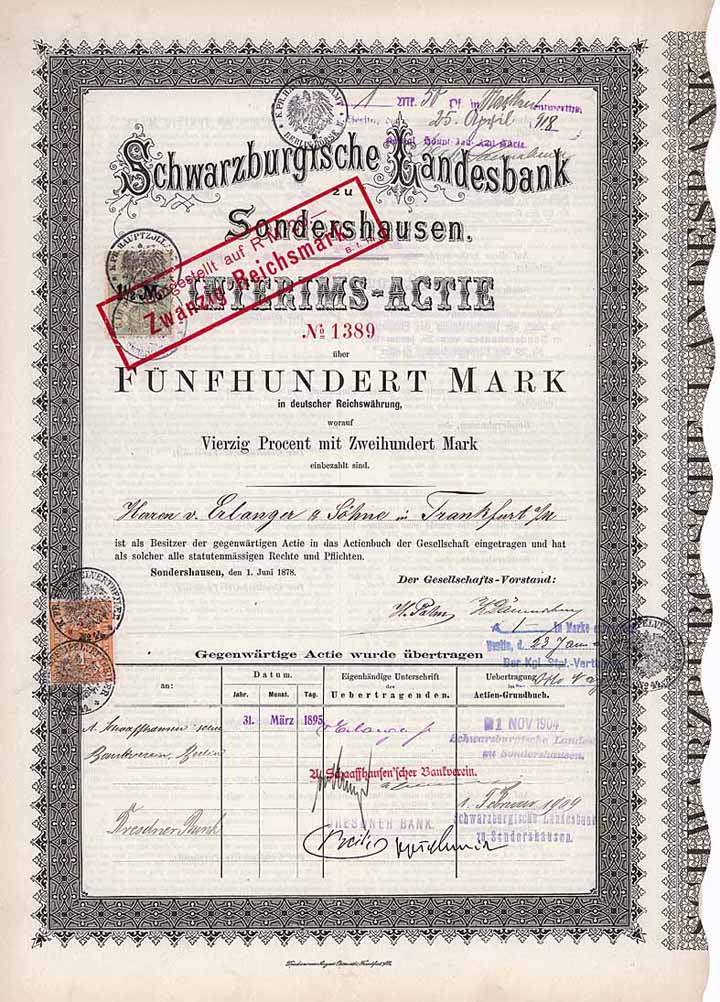 1 Mk. 50 Pf. in Marken entwertet.
25. April 1918
Schwarzburgische Landesbank
zu
Sondershausen.
gestellt auf RM
Zwanzig Reichsmark
INTERIMS-ACTIE
1½ M.
№ 1389
über
FÜNFHUNDERT MARK
in deutscher Reichswährung,
worauf
Vierzig Procent mit Zweihundert Mark
einbezahlt sind.
Herren v. Erlanger & Söhne in Frankfurt a/M
ist als Besitzer der gegenwärtigen Actie in das Actienbuch der Gesellschaft eingetragen und hat
als solcher alle statutenmässigen Rechte und Pflichten.
Sondershausen, den 1. Juni 1878.
Der Gesellschafts-Vorstand:
in Marke
Berlin, d. 23 Januar
Der Kgl. Stpl.-Vert
Gegenwärtige Actie wurde übertragen
an:
Datum.
Jahr. Monat. Tag.
Eigenhändige Unterschrift
des
Uebertragenden.
Uebertragung
im
Actien-Grundbuch.
A. Schaaffhausen'scher
Bankverein, Berlin
31. März 1895
21 NOV 1904
Schwarzburgische Landes
zu Sondershausen.
A. Schaaffhausen'scher Bankverein.
Dresdner Bank
DRESDNER BANK.
1. Februar 1909
Schwarzburgische Landesbank
zu Sondershausen.
SCHWARZBURGISCHE LANDESBANK